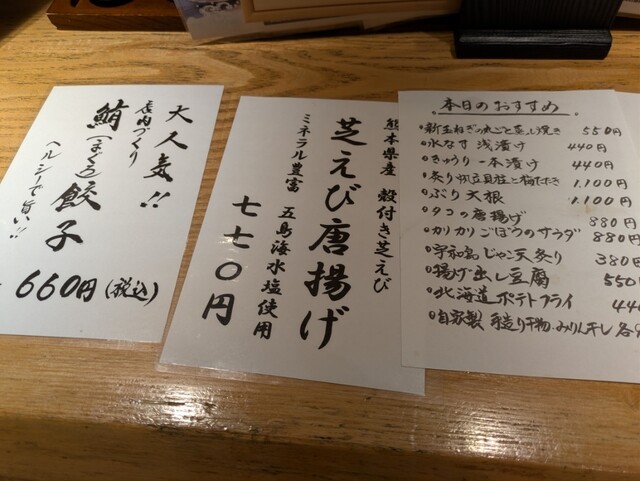 大人気!!
店内づくり
鮪(まぐろ)餃子
ヘルシーで旨い!!
660円(税込)
熊本県産 殻付き芝えび
芝えび唐揚げ
ミネラル豊富 五島海水塩使用
七七〇円
本日のおすすめ
新玉ねぎの丸ごと蒸し焼き 550円
水なす 浅漬け 440円
きゅうり一本漬け 440円
炙り帆立貝柱と梅たたき 1,100円
ぶり大根 1,100円
タコの唐揚げ 880円
カリカリごぼうのサラダ 880円
宇和島じゃこ天炙り 380円
揚げ出し豆腐 550
北海道ポテトフライ 44
自家製 手造り干物・みりん干し 各